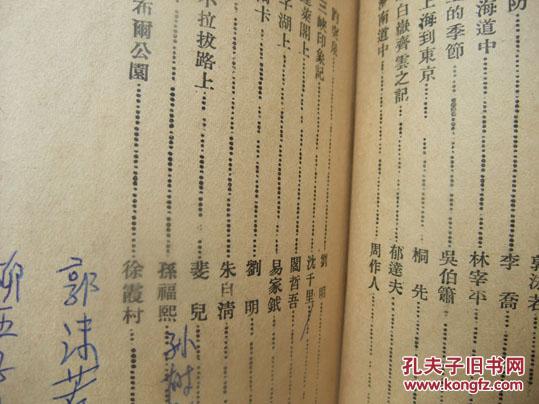 防 郭沫若
海道中 李喬
的季節 林宰平
上海到東京 吳伯簫
白嶽齊雲之記 桐先
濟南道中 郁達夫
周作人
劉明
三峽印象記 沈千里
蓬萊閣上 閻哲吾
子湖上 易家鉞
卡 劉明
木拉拔路上 朱自清
斐兒
布爾公園 孫福熙
徐霞村
孙
郭沫若
柳亚子
孔夫子旧书网
www.kongfz.com